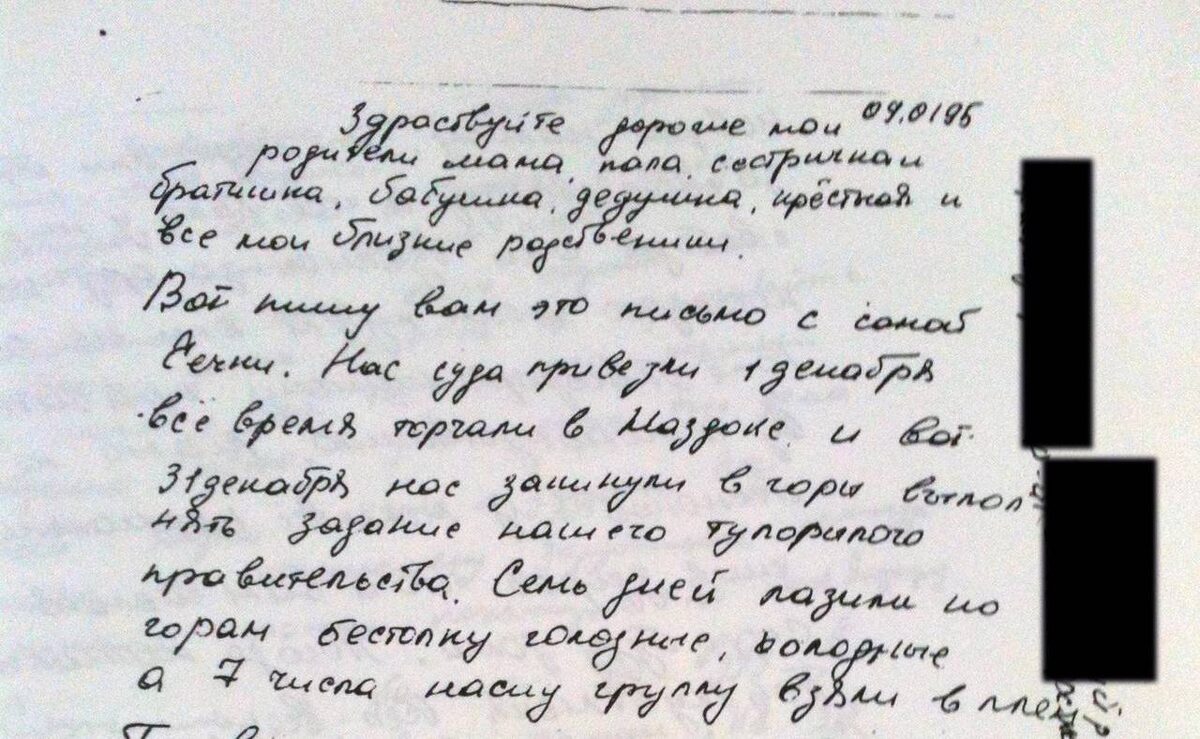 Здраствуйте дорогие мои 09.01.95
родители мама, папа, сестричка и
братишка, бабушка, дедушка, крёстная и
все мои близкие родственики.
Вот пишу вам это письмо с самой
Чечни. Нас суда привезли 1 декабря
всё время торчали в Маздоке и вот
31 декабря нас закинули в горы выпол
нять задание нашего тупорылого
правительства. Семь дней лазили по
горам бестолку голодные, холодные
а 7 числа нашу группу взяли в плен